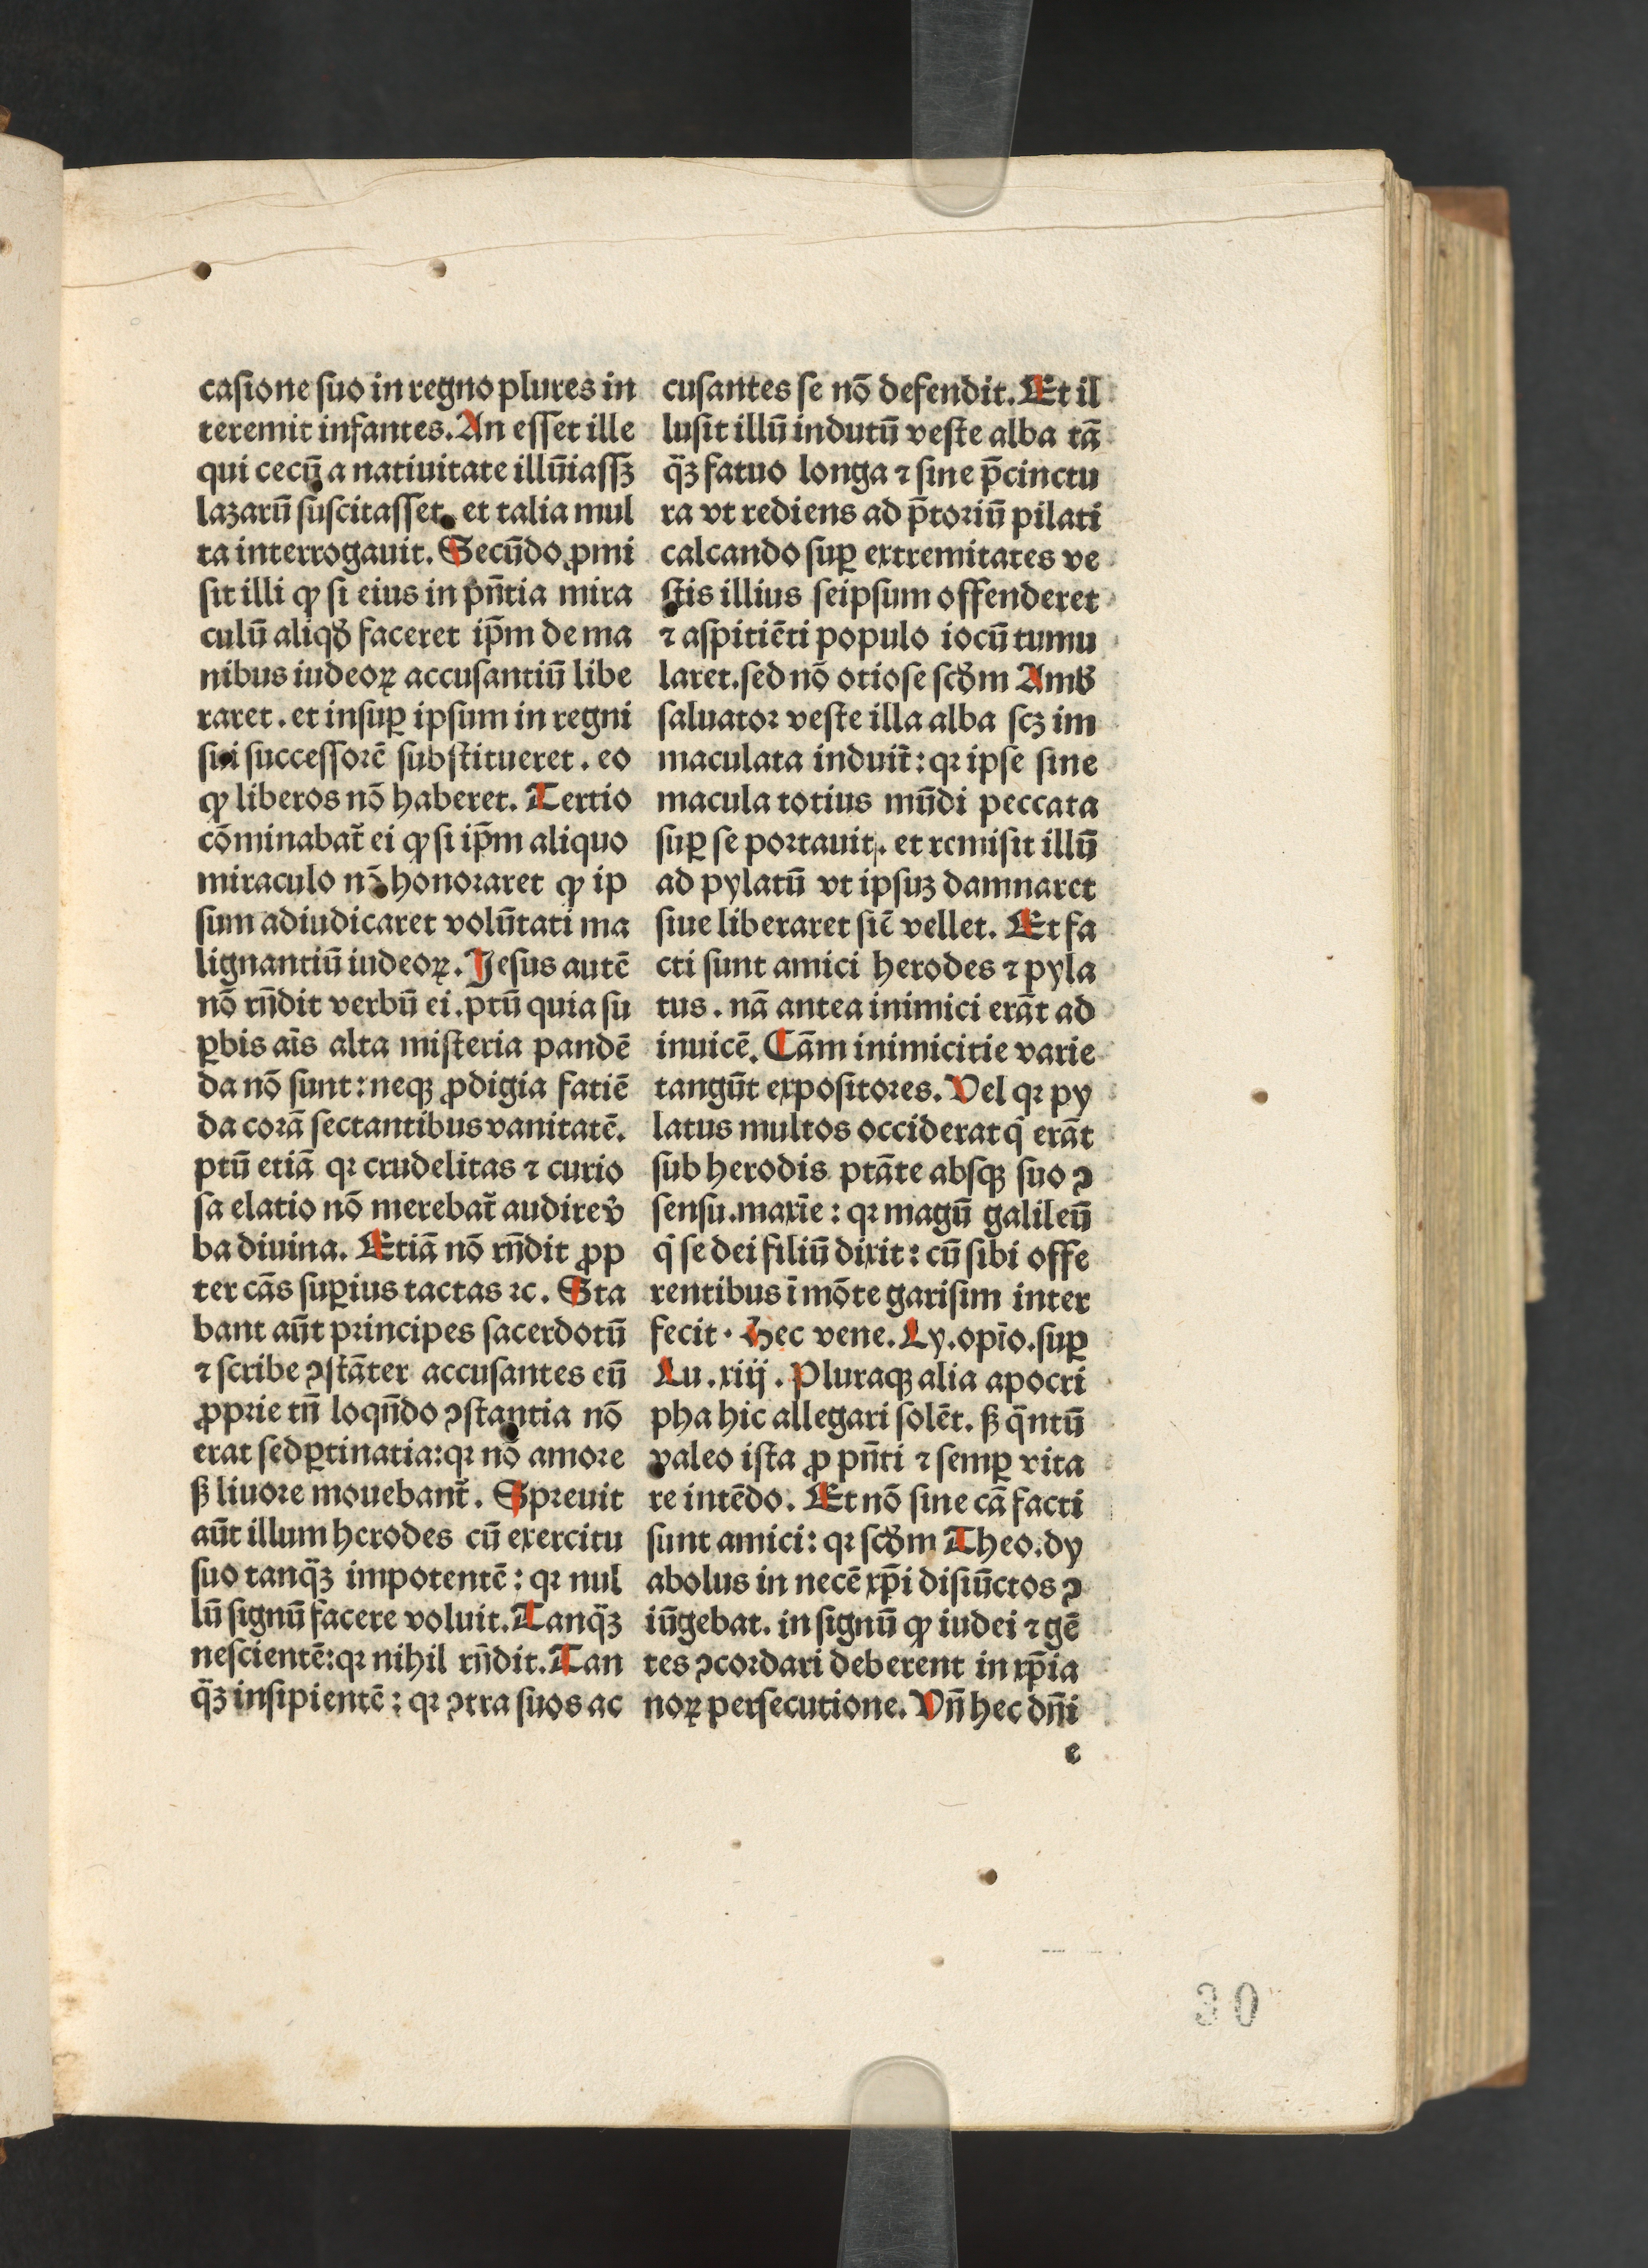 casione suo in regno plures in
teremit infantes. An esset ille
qui cecū a natiuitate illūiassꝫ
lazarū suscitasset. et talia mul
ta interrogauit. Secūdo ꝓmi
sit illi ꝙ si eius in pn̄tia mira
culū aliqḋ faceret ip̄m de ma
nibus iudeoꝝ accusantiū libe
raret. et insuꝑ ipsum in regni
sui successorē substitueret. eo
ꝙ liberos nō haberet. Tertio
cōminabat̄ ei ꝙ si ip̄m aliquo
miraculo nō honoraret ꝙ ip
sum adiudicaret volūtati ma
lignantiū iudeoꝝ. Jesus autē
nō rn̄dit verbū ei. ptū quia su
ꝑbis aīs alta misteria pandē
da nō sunt: neqꝫ ꝓdigia fatiē
da corā sectantibus vanitatē.
ptū etiā qꝛ crudelitas ⁊ curio
sa elatio nō merebat̄ audire v̓
ba diuina. Etiā nō rn̄dit ꝓp
ter cās suꝑius tactas ⁊c. Sta
bant aūt principes sacerdotū
⁊ scribe ꝯstāter accusantes eū
ꝓprie tn̄ loqn̄do ꝯstantia nō
erat sed ꝑtinatia: qꝛ nō amore
ß liuore mouebant̄. Spreuit
aūt illum herodes cū exercitu
suo tanq̄ꝫ impotentē: qꝛ nul
lū signū facere voluit. Tanq̄ꝫ
nescientē: qꝛ nihil rn̄dit. Tan
q̄ꝫ insipientē: qꝛ ꝯtra suos ac
cusantes se nō defendit. Et il
lusit illū indutū veste alba tā
q̄ꝫ fatuo longa ⁊ sine p̄cinctu
ra vt rediens ad p̄toriū pilati
calcando suꝑ extremitates ve
stis illius seipsum offenderet
⁊ aspitiēti populo iocū tumu
laret. sed nō otiose scḋm Amb̓
saluator veste illa alba scꝫ im
maculata induit̄: qꝛ ipse sine
macula totius mūdi peccata
suꝑ se portauit. et remisit illū
ad pylatū vt ipsuꝫ damnaret
siue liberaret siē vellet. Et fa
cti sunt amici herodes ⁊ pyla
tus. nā antea inimici erāt ad
inuicē. Cām inimicitie varie
tangūt expositores. Vel qꝛ py
latus multos occiderat q̇ erāt
sub herodis ptāte absqꝫ suo ꝯ
sensu. maxīe: qꝛ magū galileū
q̇ se dei filiū dixit: cū sibi offe
rentibus ī mōte garisim inter
fecit. Hec vene. Ly. opīo. suꝑ
Lu. xiij. Pluraqꝫ alia apocri
pha hic allegari solēt. ß q̄ntū
valeo ista ꝓ pn̄ti ⁊ semꝑ vita
re intēdo. Et nō sine cā facti
sunt amici: qꝛ scḋm Theo. dy
abolus in necē xp̄i disiūctos ꝯ
iūgebat. in signū ꝙ iudei ⁊ gē
tes ꝯcordari deberent in xp̄ia
noꝝ persecutione. Vn̄ hec dn̄i
e
30